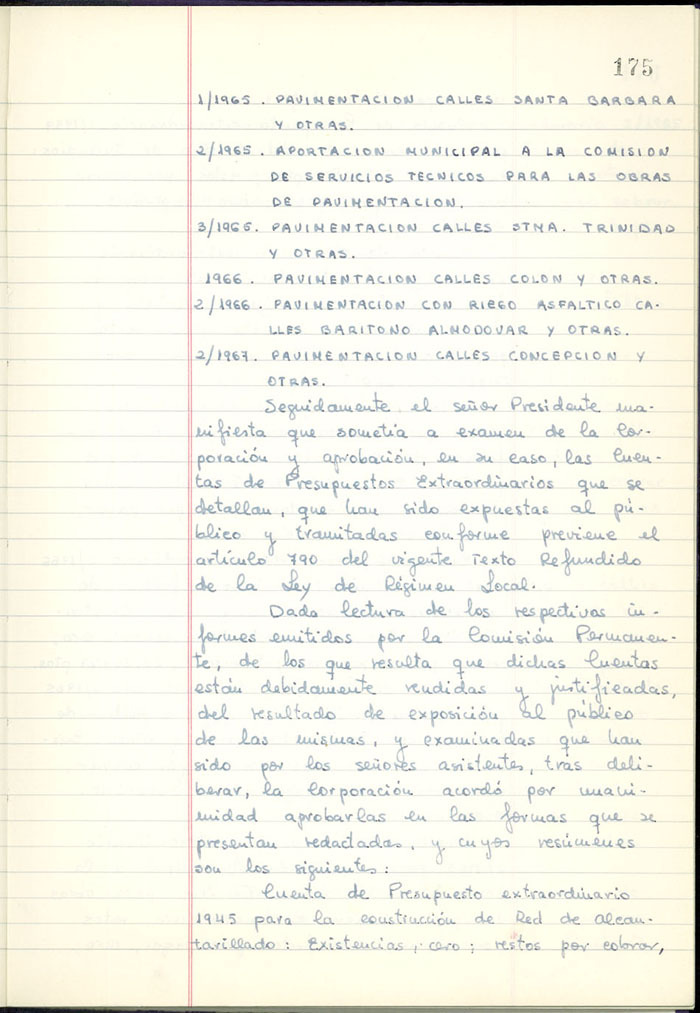 175
1/1965. PAVIMENTACION CALLES SANTA BARBARA
Y OTRAS.
2/1965. APORTACION MUNICIPAL A LA COMISION
DE SERVICIOS TECNICOS PARA LAS OBRAS
DE PAVIMENTACION.
3/1965. PAVIMENTACION CALLES STMA. TRINIDAD
Y OTRAS.
1966. PAVIMENTACION CALLES COLON Y OTRAS.
2/1966. PAVIMENTACION CON RIEGO ASFALTICO CA-
LLES BARITONO ALMODOVAR Y OTRAS.
2/1967. PAVIMENTACION CALLES CONCEPCION Y
OTRAS.
Seguidamente el señor Presidente ma-
nifiesta que sometía a examen de la Cor-
poración y aprobación, en su caso, las Cuen-
tas de Presupuestos Extraordinarios que se
detallan, que han sido expuestas al pú-
blico y tramitadas conforme previene el
artículo 790 del vigente Texto Refundido
de la Ley de Régimen Local.
Dada lectura de los respectivos in-
formes emitidos por la Comisión Permanen-
te, de los que resulta que dichas Cuentas
están debidamente rendidas y justificadas,
del resultado de exposición al público
de las mismas, y examinadas que han
sido por los señores asistentes, tras deli-
berar, la Corporación acordó por unani-
midad aprobarlas en las formas que se
presentan redactadas, y cuyos resúmenes
son los siguientes:
Cuenta de Presupuesto extraordinario
1945 para la construcción de Red de Alcan-
tarillado: Existencias, cero; restos por cobrar,